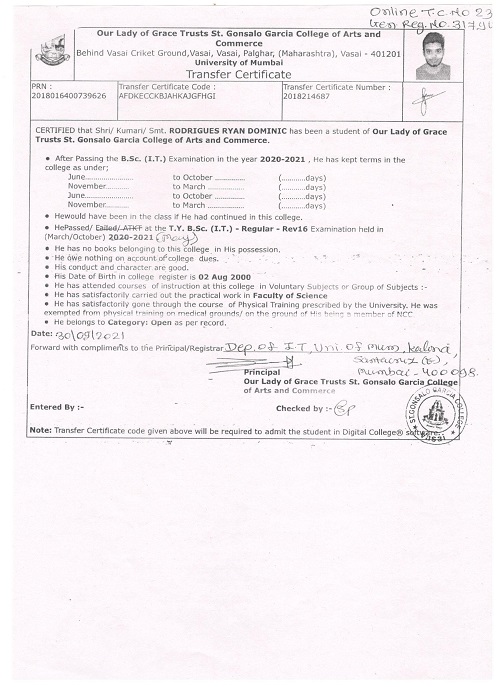 Online T.C No 23
Gen Reg. No. 317
Our Lady of Grace Trusts St. Gonsalo Garcia College of Arts and
Commerce
Behind Vasai Criket Ground,Vasai, Vasai, Palghar, (Maharashtra), Vasai - 401201
University of Mumbai
Transfer Certificate
PRN :
2018016400739626
Transfer Certificate Code :
AFDKECCKBJAHKAJGFHGI
Transfer Certificate Number :
2018214687
CERTIFIED that Shri/ Kumari/ Smt. RODRIGUES RYAN DOMINIC has been a student of Our Lady of Grace
Trusts St. Gonsalo Garcia College of Arts and Commerce.
• After Passing the B.Sc (I.T.) Examination in the year 2020-2021 , He has kept terms in the
college as under;
June..................... to October .............. (...........days)
November............... to March .............. (...........days)
June..................... to October .............. (...........days)
November............... to March .............. (...........days)
• Hewould have been in the class if He had continued in this college.
• HePassed/ Failed/ ATKT at the T.Y. B.Sc. (I.T.) - Regular - Rev16 Examination held in
(March/October) 2020-2021 (May)
• He has no books belonging to this college in His possession.
• He owe nothing on account of college dues.
• His conduct and character are good.
• His Date of Birth in college register is 02 Aug 2000
• He has attended courses of instruction at this college in Voluntary Subjects or Group of Subjects :-
• He has satisfactorily carried out the practical work in Faculty of Science
• He has satisfactonily gone through the course of Physical Training prescribed by the University. He was
exempted from physical training on medical grounds/ on the ground of His being a member of NCC.
• He belongs to Category: Open as per record.
Date: 30/09/2021
Forward with compliments to the Principal/Registrar Dep. of I.T, Uni. of Mum, Kalina
Santacruz (E),
Mumbai - 400098.
Principal
Our Lady of Grace Trusts St. Gonsalo Garcia College
of Arts and Commerce
Entered By :- Checked by :-
ST. GONSALO GARCIA COLLEGE
VASAI
Note: Transfer Certificate code given above will be required to admit the student in Digital College® software.